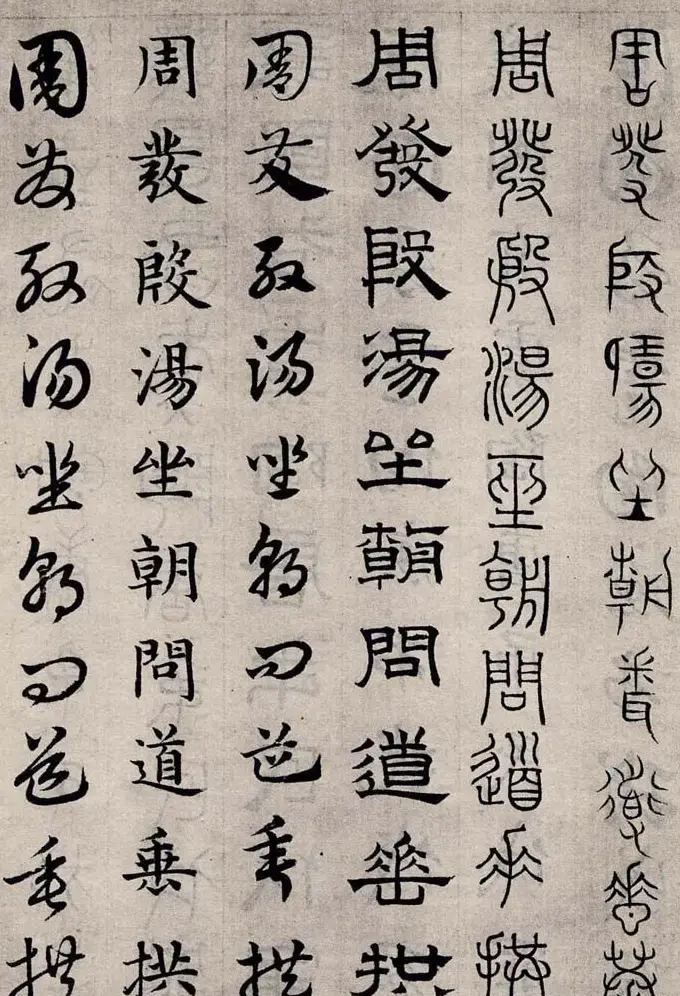 周發殷湯坐朝問道垂拱
周發殷湯坐朝問道垂拱
周發殷湯坐朝問道垂拱
周發殷湯坐朝問道垂拱
周發殷湯坐朝問道垂拱
周發殷湯坐朝問道垂拱